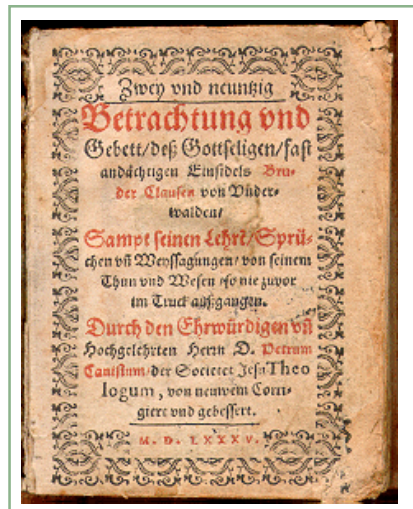 Zwey vnd neuntzig
Betrachtung vnd
Gebett/deß Gottseligen/fast
andächtigen Einsidels Bru-
der Clausen von Vnder-
walden/
Sampt seinen Lehrē/Sprü-
chen vñ Weyssagungen/von seinem
Thun vnd Wesen/so nie zuvor
im Truck außgangen.
Durch den Ehrwürdigen vñ
Hochgelehrten Herrn D. Petrum
Canisium/der Societet Jesu Theo
logum, von neuwem Corri-
giert vnd gebessert.
M. D. LXXXV.